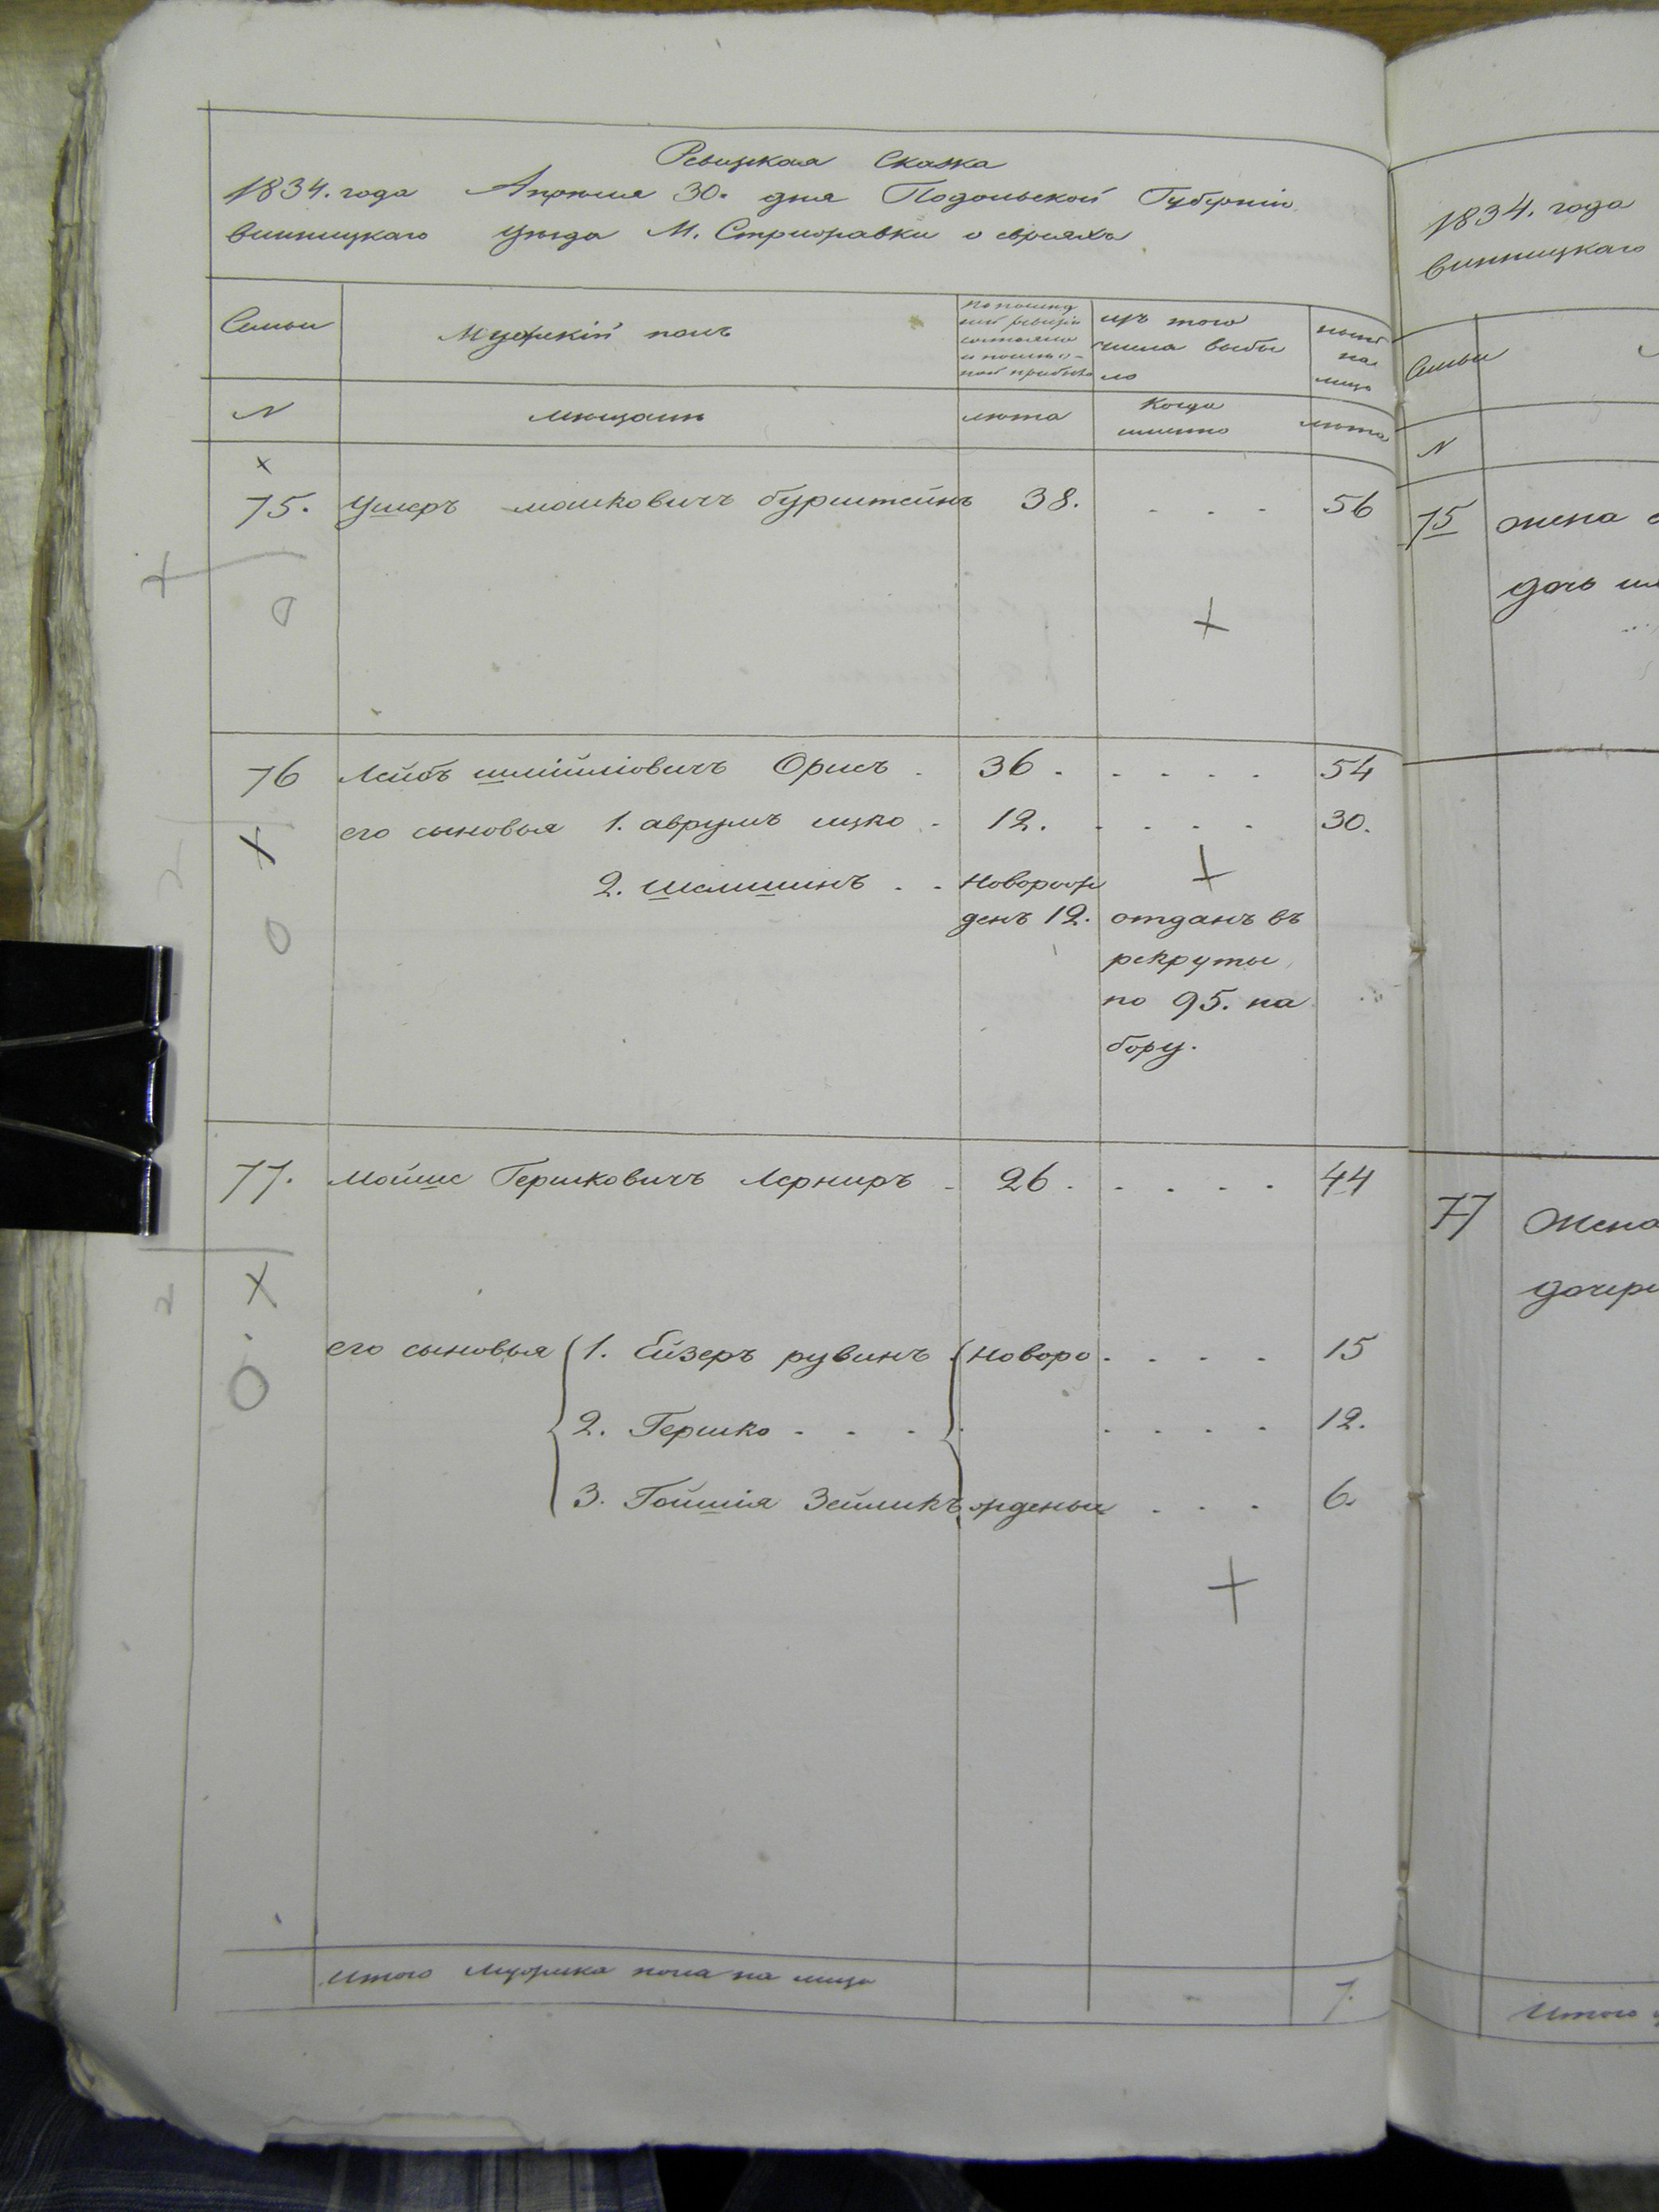 Ревизкая Сказка
1834. года Апреля 30. дня Подольской Губернiи
винницкаго уезда М. Стрижавки о евреяхъ
Семьи
Мужескiй полъ
по послед
ней ревизiи
состояло
и после о-
ной прибыло
изъ того
числа выбы
ло
ныне
на
лицо
N
мещане
лета
когда
именно
лета
75. Ушеръ мошковичъ бурштейнъ 38. . . . 56
76 Лейбъ Орисъ . 36 . . . . . 54
его сыновья 1. аврумъ ицко . 12. . . . . 30.
2. шлишинъ . . Поворож
денъ 12. отданъ въ
рекруты
по 95. на
бору.
77. Мойше Гершковичъ Лерниръ . 26 . . . . . 44
его сыновья 1. Ейзеръ рувинъ . Новоро . . . . 15
2. Гершко . . . . . . . 12.
3. Гойшiя Зейликъ жденые . . . 6.
Итого Мужеска пола на лицо 7.
1834. года
винницкаго
Семьи
N
75 жена
дочь
77 Жена
дочери
Итого